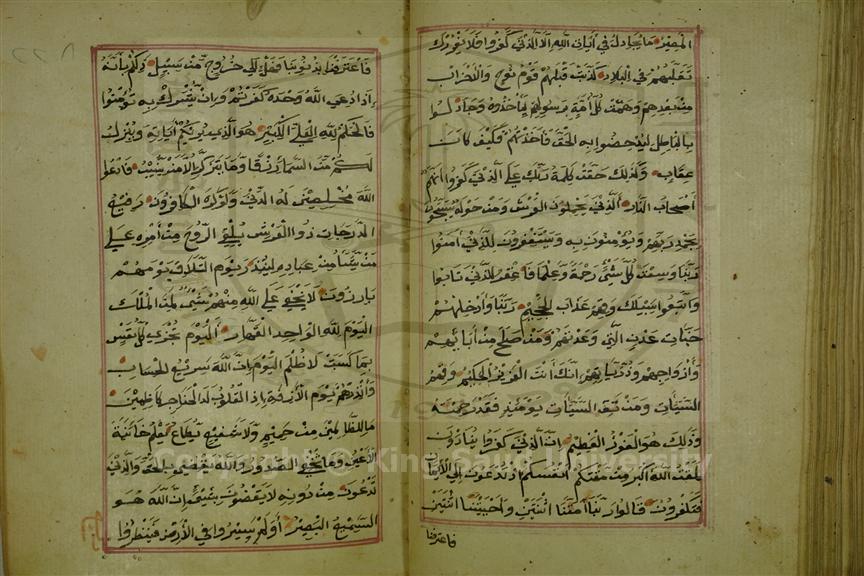 المصير ما يجادل في آيات الله إلا الذين كفروا فلا يغررك
تقلبهم في البلاد كذبت قبلهم قوم نوح والأحزاب
من بعدهم وهمت كل أمة برسولهم ليأخذوه وجادلوا
بالباطل ليدحضوا به الحق فأخذتهم فكيف كان
عقاب وكذلك حقت كلمة ربك على الذين كفروا أنهم
أصحاب النار الذين يحملون العرش ومن حوله يسبحون
بحمد ربهم ويؤمنون به ويستغفرون للذين آمنوا
ربنا وسعت كل شيء رحمة وعلما فاغفر للذين تابوا
واتبعوا سبيلك وقهم عذاب الجحيم ربنا وأدخلهم
جنات عدن التي وعدتهم ومن صلح من آبائهم
وأزواجهم وذرياتهم إنك أنت العزيز الحكيم وقهم
السيئات ومن تق السيئات يومئذ فقد رحمته
وذلك هو الفوز العظيم إن الذين كفروا ينادون
لمقت الله أكبر من مقتكم أنفسكم إذ تدعون إلى الإيمان
فتكفرون قالوا ربنا أمتنا اثنتين وأحييتنا اثنتين
فاعترفنا
فاعترفنا بذنوبنا فهل إلى خروج من سبيل ذلكم بأنه
إذا دعي الله وحده كفرتم وإن يشرك به تؤمنوا
فالحكم لله العلي الكبير هو الذي يريكم آياته وينزل
لكم من السماء رزقا وما يتذكر إلا من ينيب فادعوا
الله مخلصين له الدين ولو كره الكافرون رفيع
الدرجات ذو العرش يلقي الروح من أمره على
من يشاء من عباده لينذر يوم التلاق يوم هم
بارزون لا يخفى على الله منهم شيء لمن الملك
اليوم لله الواحد القهار اليوم تجزى كل نفس
بما كسبت لا ظلم اليوم إن الله سريع الحساب
وأنذرهم يوم الآزفة إذ القلوب لدى الحناجر كاظمين
ما للظالمين من حميم ولا شفيع يطاع يعلم خائنة
الأعين وما تخفي الصدور والله يقضي بالحق والذين
تدعون من دونه لا يقضون بشيء إن الله هو
السميع البصير أولم يسيروا في الأرض فينظروا
Copyright © King Saud University